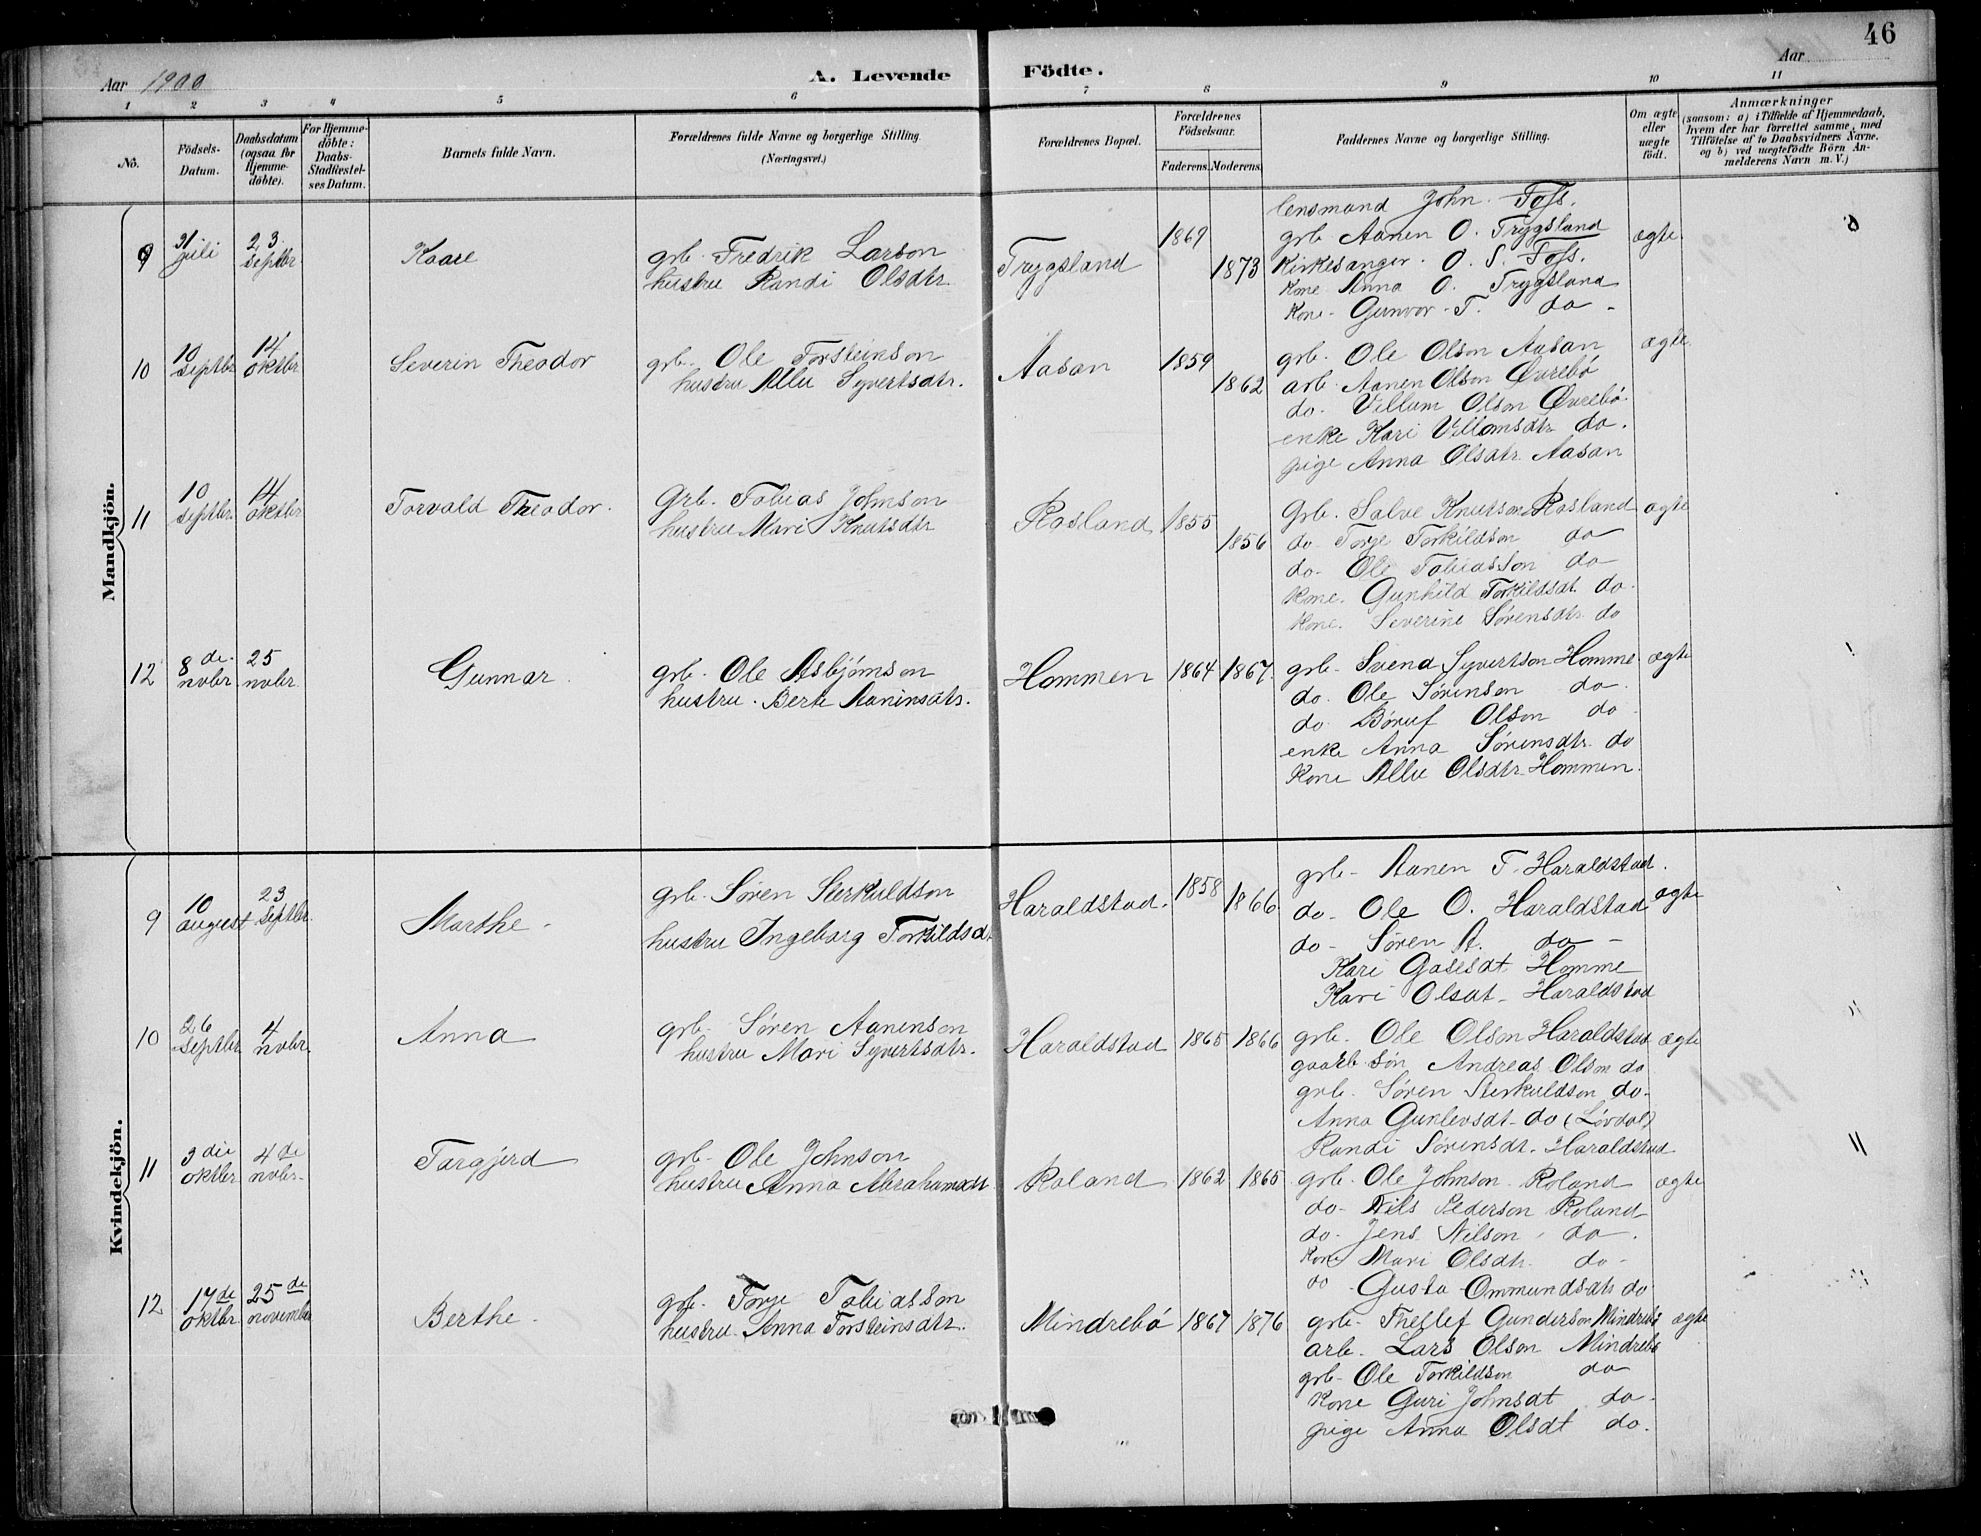 46
Aar 1900
A. Levende Födte.
Aar
1 2 3 4 5 6 7 8 9 10 11
Nô.
Födsels-Datum.
Daabsdatum (ogsaa for Hjemme-döbte).
For Hjemme-döbte: Daabs-Stadfæstel-ses Datum.
Barnets fulde Navn.
Forældrenes fulde Navne og borgerlige Stilling.
(Næringsvei.)
Forældrenes Bopæl.
Forældrenes Födselsaar.
Faderens. Moderens.
Faddernes Navne og borgerlige Stilling.
Om ægte eller uægte födt.
Anmærkninger
(saasom: a) i Tilfælde af Hjemmedaab,
hvem der har forrettet samme, med
Tilföielse af to Daabsvidners Navne.
og b) ved uægtefödte Börn An-
melderens Navn m. V.)
Mandkjön.
9 31 juli 23 septbr Kaare
grb. Fredrik Larson
hustru Randi Olsdtr.
Trygsland 1869 1873
lensmand John Foss.
grb. Aanen O. Trygsland ægte
Kirkesanger O. S. Foss.
Kone Anna O. Trygsland
Kone Gunvor T. do
10 10 septbr 14 oktbr Severin Theodor
grb. Ole Torsteinson
hustru Allu Syvertsdtr.
Aasan 1859 1862
grb. Ole Olson Aasan ægte
arb. Aanen Olson Øvrebö
do. Villum Olson Øvrebö
enke Kari Villomsdtr do.
pige Anna Olsdtr. Aasan
11 10 septbr. 14 oktbr Torvald Theodor.
Grb. Tobias Johnson
hustru Mari Knutsdtr
Rosland 1855 1856
Grb. Salve Knutson Rosland ægte
do Torje Torkildson do
do Ole Tobiasson do
Kone. Gunhild Torkildsdt. do.
Kone. Severine Sørensdtr. do
12 8de novbr 25 novbr. Gunnar.
grb. Ole Asbjørnson
hustru. Berte Aaninsdtr.
Hommen 1864 1867.
grb. Svend Syvertson Homme ægte
do. Ole Sørenson do.
do Børuf Olson do
enke Anna Sørensdtr. do
Kone Allu Olsdtr Hommen.
Kvindekjön.
9 10 august 23 septbr. Marthe
grb. Søren Sterkuldson
hustru Ingeborg Torkildsd.
Haraldstad. 1858 1866
grb. Aanen T. Haraldstad.
do. Ole O. Haraldstad ægte
do. Søren A. do
Kari Gasesdt Homme
Kari Olsdt Haraldstad
10 26 septbr. 4 novbr. Anna
grb. Søren Aanenson
hustru Mari Syvertsdtr.
Haraldstad 1865 1866
grb. Ole Olson Haraldstad ægte
gaardb. søn Andreas Olson do
grb. Søren Sterkuldson do.
Anna Gunlevsdt do (Løvdal)
Randi Sørensdt. Haraldstad
11 3die oktbr 4de novbr. Targjerd
grb. Ole Johnson
hustru Anna Abrahamsdt
Roland 1862 1865
grb. Ole Johnson Roland ægte
do. Nils Pederson Roland
do. Jens Nilson do.
Kone Mari Olsdtr. do
do Gusta Ommundsdtr do
12 17de oktbr 25de november Berthe
grb. Torje Tobiasson
hustru Anna Torsteinsdtr.
Mindrebö 1867 1876
grb. Thellef Gunderson Mindrebö ægte
arb. Lars Olson Mindrebö
grb. Ole Torkildson do
Kone Guri Johnsdt do.
pige Anna Olsdt do.